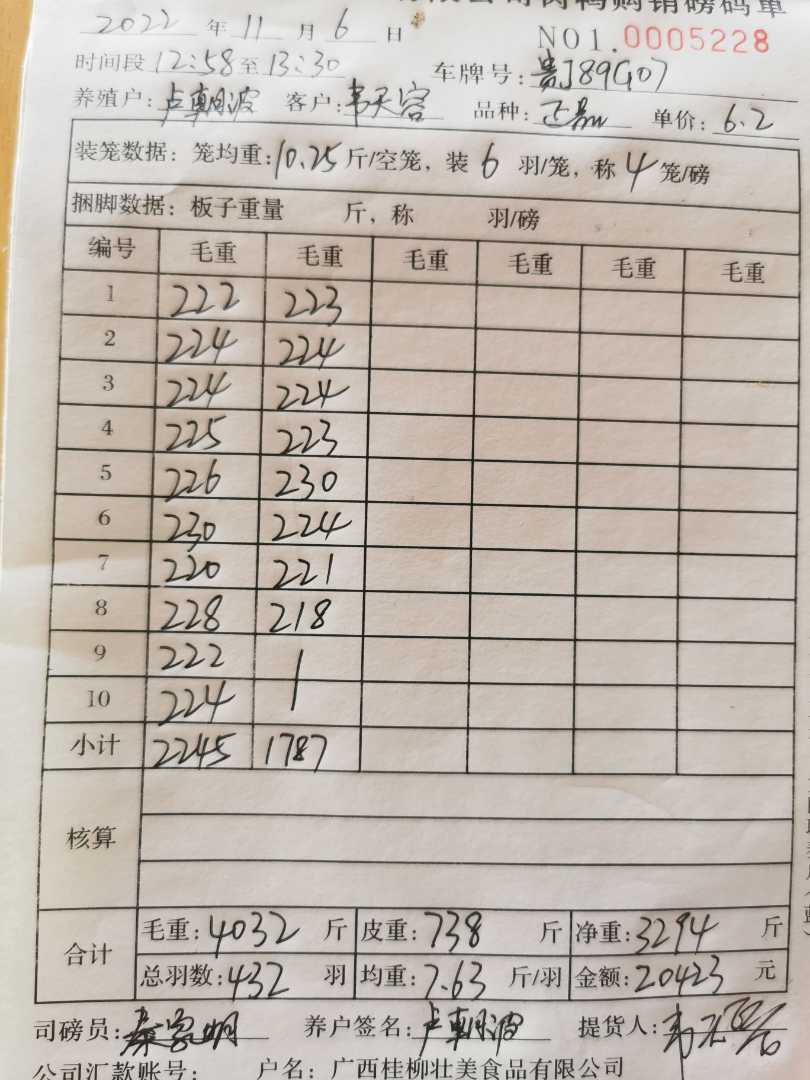 公司肉鸭购销磅码单
2022 年 11 月 6 日 NO1.0005228
时间段 12:58 至 13:30 车牌号: 贵J89G07
养殖户: 卢朝波 客户: 韦天容 品种: 单价: 6.2
装笼数据: 笼均重: 10.25 斤/空笼, 装 6 羽/笼, 称 4 笼/磅
捆脚数据: 板子重量 斤, 称 羽/磅
编号 毛重 毛重 毛重 毛重 毛重 毛重
1 222 223
2 224 224
3 224 224
4 225 223
5 226 230
6 230 224
7 220 221
8 228 218
9 222
10 224
小计 2245 1787
核算
合计
毛重: 4032 斤 皮重: 738 斤 净重: 3294 斤
总羽数: 432 羽 均重: 7.63 斤/羽 金额: 20423 元
司磅员: 养户签名: 卢朝波 提货人:
公司汇款账号: 户名: 广西桂柳壮美食品有限公司